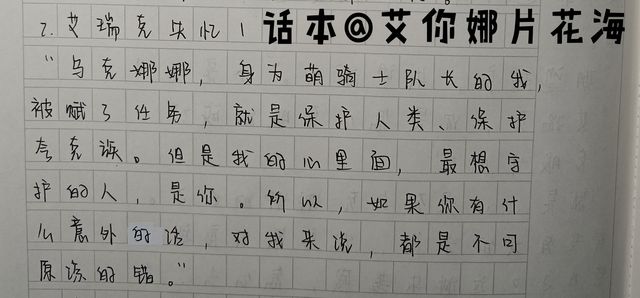 2. 艾瑞克失忆 1 话本@艾你娜片花海
“乌克娜娜，身为萌骑士队长的我，
被赋了任务，就是保护人类、保护
夸克族。但是我的心里面，最想守
护的人，是你。所以，如果你有什
么意外的话，对我来说，都是不可
原谅的错。”